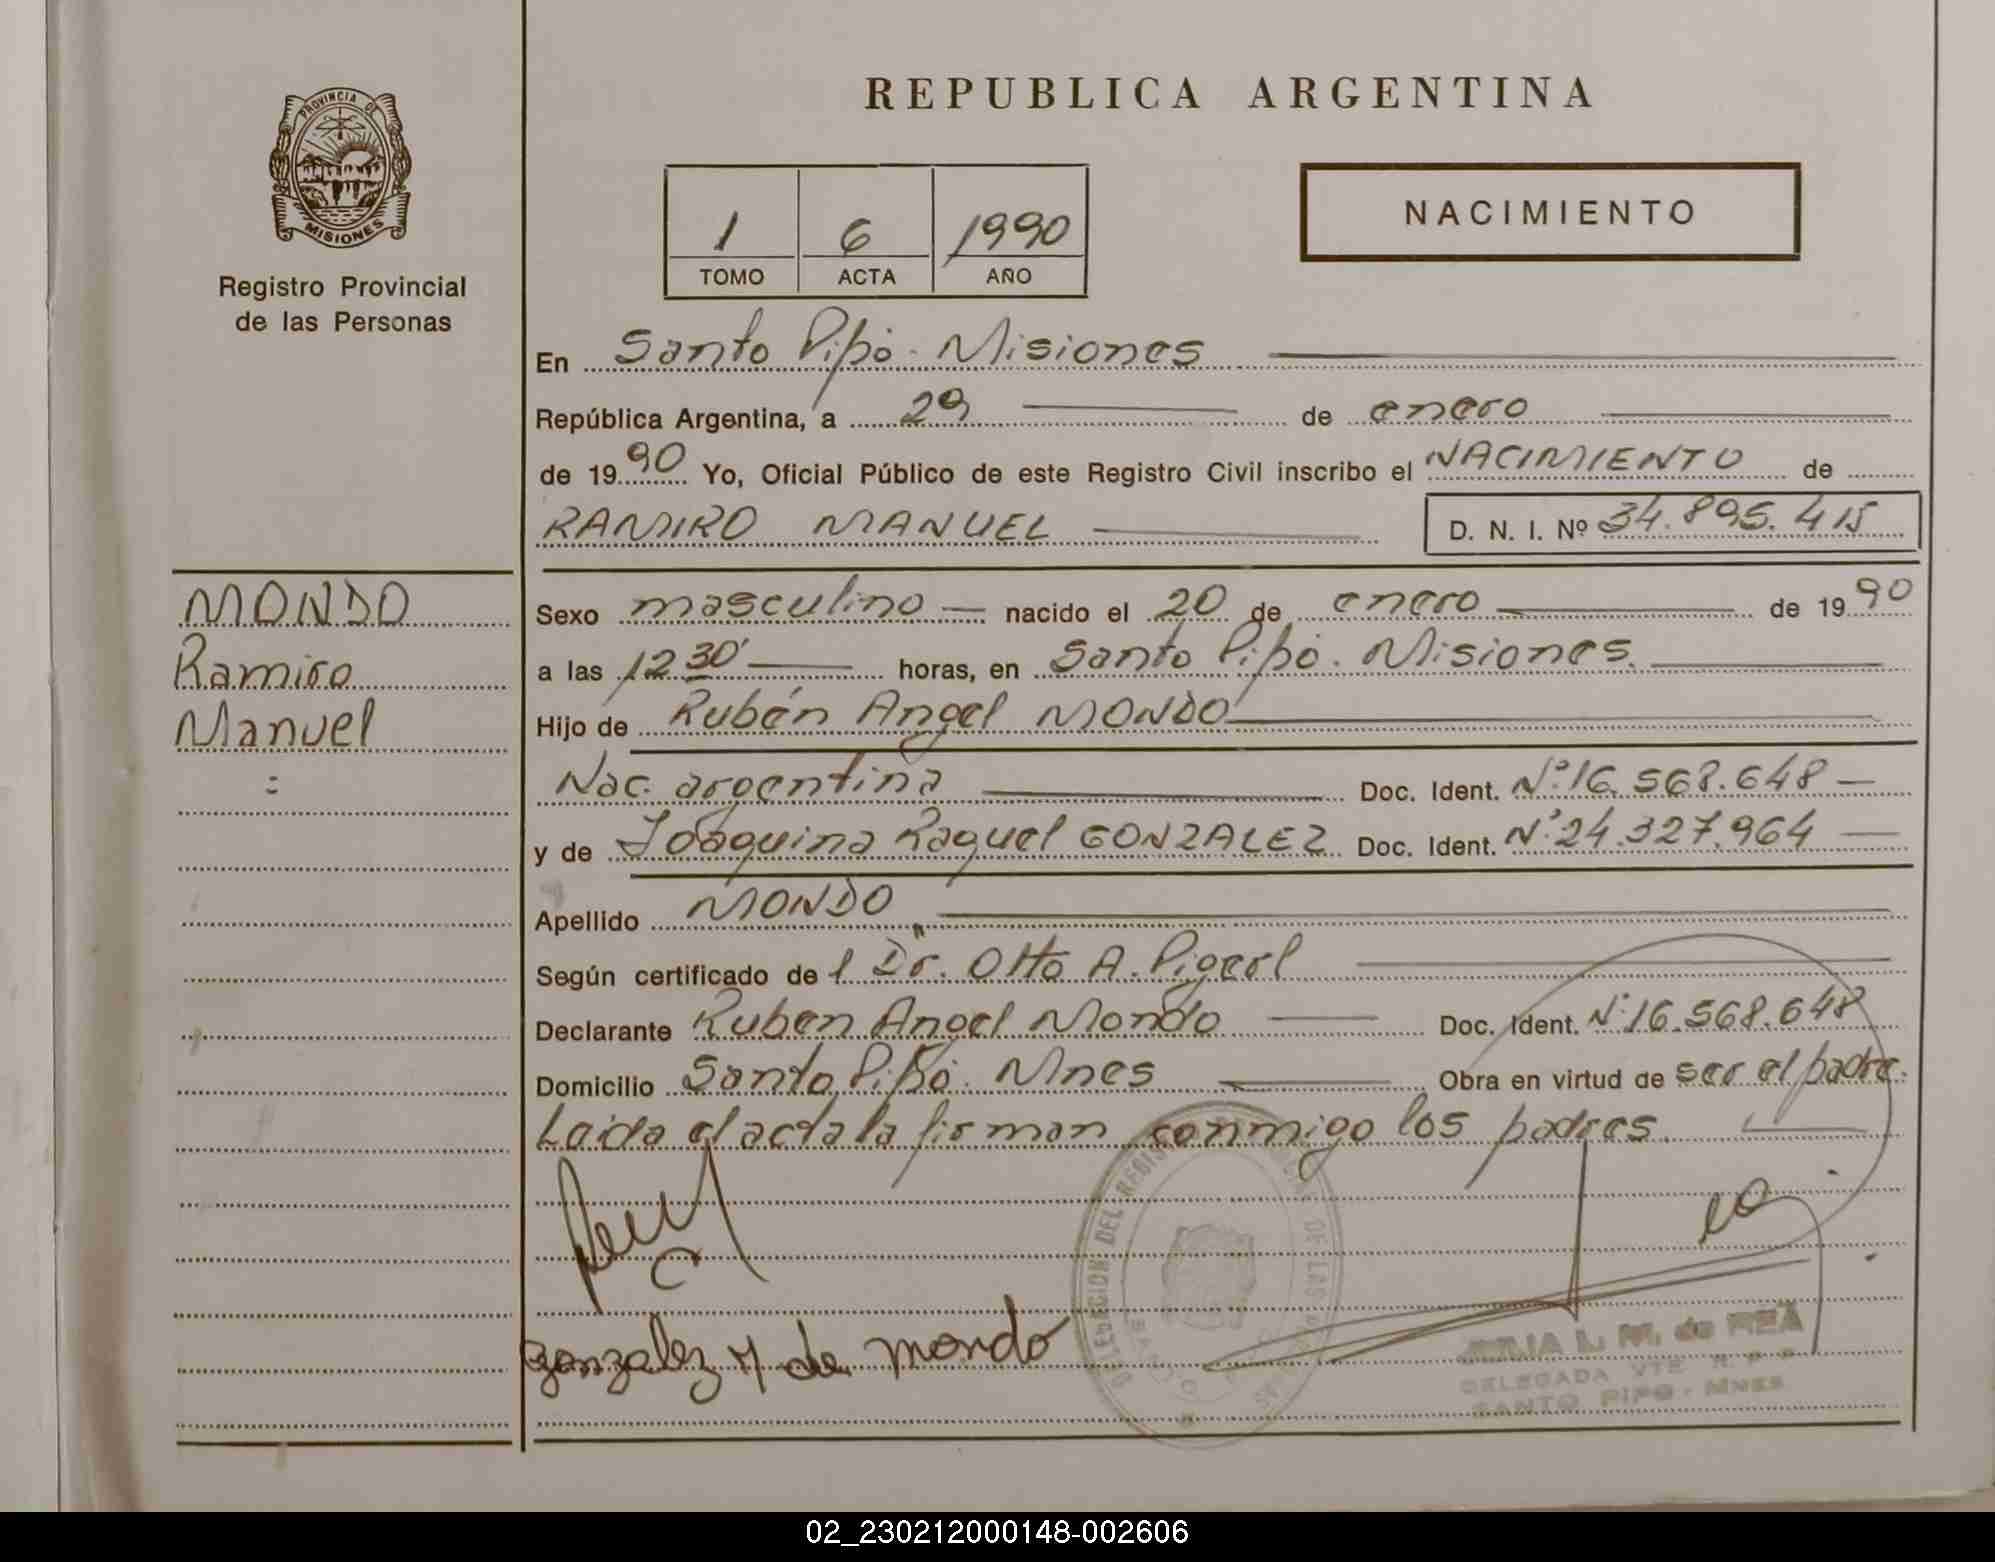 PROVINCIA DE
MISIONES
Registro Provincial
de las Personas
REPUBLICA ARGENTINA
1 6 1990
TOMO ACTA AÑO
NACIMIENTO
En Santo Pipó - Misiones
República Argentina, a 29 de enero
de 1990 Yo, Oficial Público de este Registro Civil inscribo el NACIMIENTO de
RAMIRO MANUEL D. N. I. Nº 34.895.415
MONDO
Ramiro
Manuel
Sexo masculino nacido el 20 de enero de 1990
a las 12 30' horas, en Santo Pipó. Misiones.
Hijo de Rubén Angel MONDO
Nac. argentina Doc. Ident. Nº 16.568.648
y de Joaquina Raquel GONZALEZ Doc. Ident. Nº 24.327.964
Apellido MONDO
Según certificado de l Dr. Otto A. Pigerl
Declarante Ruben Angel Mondo Doc. Ident. Nº 16.568.648
Domicilio Santo Pipó. Mnes Obra en virtud de ser el padre.
Leida el acta la firman conmigo los padres.
gonzalez de mondo
JULIA L. M. de REA
DELEGADA
SANTO PIPO - MNES
02_230212000148-002606